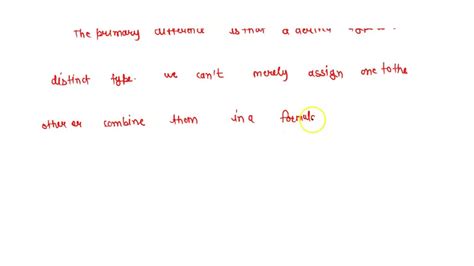 The primary difference is that a
distinct type. we can't merely assign one to the
other or combine them in a formula